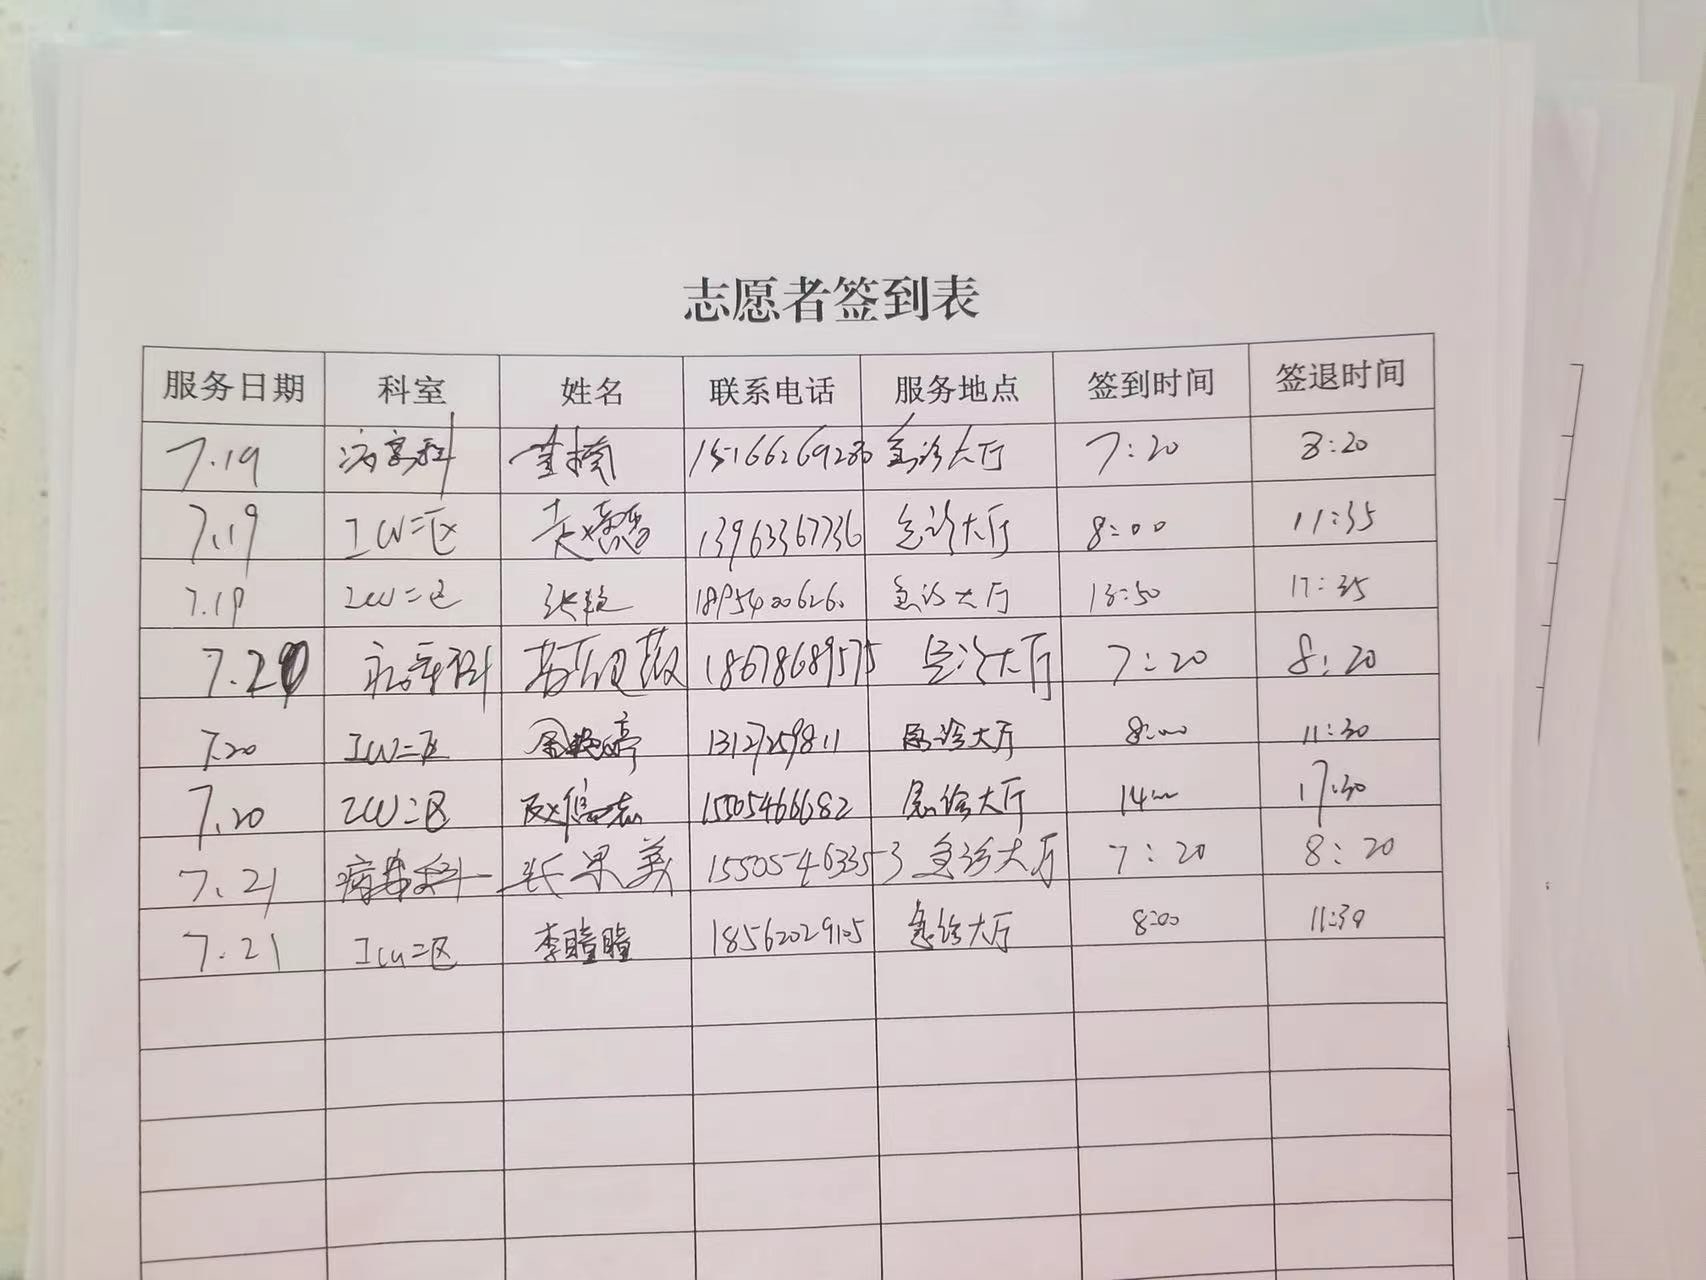 志愿者签到表
服务日期 科室 姓名 联系电话 服务地点 签到时间 签退时间
7.19 病案科 董楠 急诊大厅 7:20 8:20
7.19 ICU二区 13963367736 急诊大厅 8:00 11:35
7.19 ICU二区 张 18954006260 急诊大厅 13:50 17:35
7.20 病案科 18678689575 急诊大厅 7:20 8:20
7.20 ICU二区 13127259811 急诊大厅 8:00 11:30
7.20 ICU二区 15505466682 急诊大厅 14:00 17:30
7.21 病案科 张果美 15505463353 急诊大厅 7:20 8:20
7.21 ICU二区 李瞳瞳 18562029105 急诊大厅 8:00 11:30